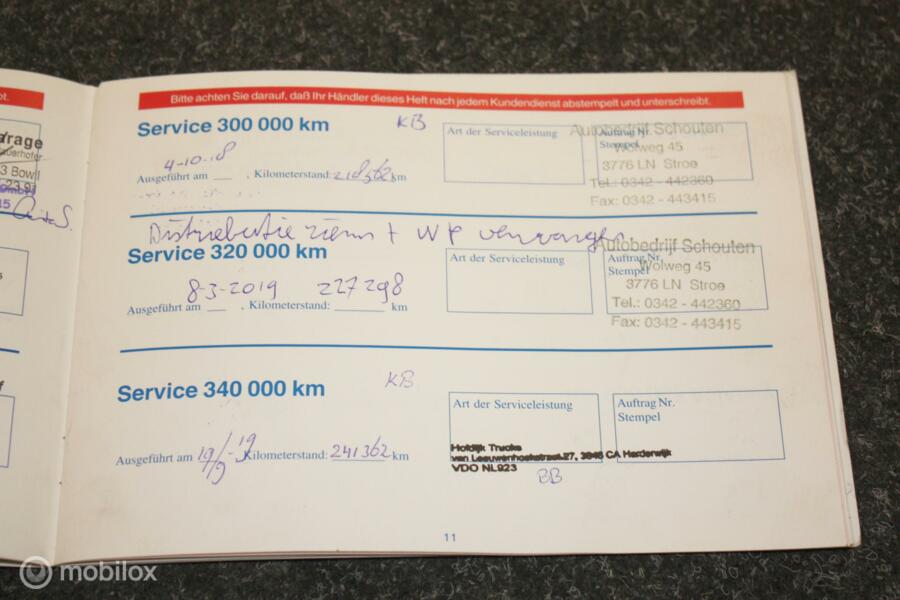 bt.
Bitte achten Sie darauf, daß Ihr Händler dieses Heft nach jedem Kundendienst abstempelt und unterschreibt.
Service 300 000 km
KB
Art der Serviceleistung
Auftrag Nr.
Stempel
Autobedrijf Schouten
Wolweg 45
3776 LN Stroe
Tel.: 0342 - 442360
Fax: 0342 - 443415
4-10-18
Ausgeführt am , Kilometerstand: 218362 km
Distributie riem + WP vervangen
Service 320 000 km
Art der Serviceleistung
Auftrag Nr.
Stempel
Autobedrijf Schouten
Wolweg 45
3776 LN Stroe
Tel.: 0342 - 442360
Fax: 0342 - 443415
8-3-2019 227298
Ausgeführt am , Kilometerstand: km
Service 340 000 km
KB
Art der Serviceleistung
Auftrag Nr.
Stempel
Ausgeführt am 19/9-19 Kilometerstand: 241362 km
Holdijk Trucks
van Leeuwenhoekstraat 27, 3846 CA Harderwijk
VDO NL923
BB
11
mobilox